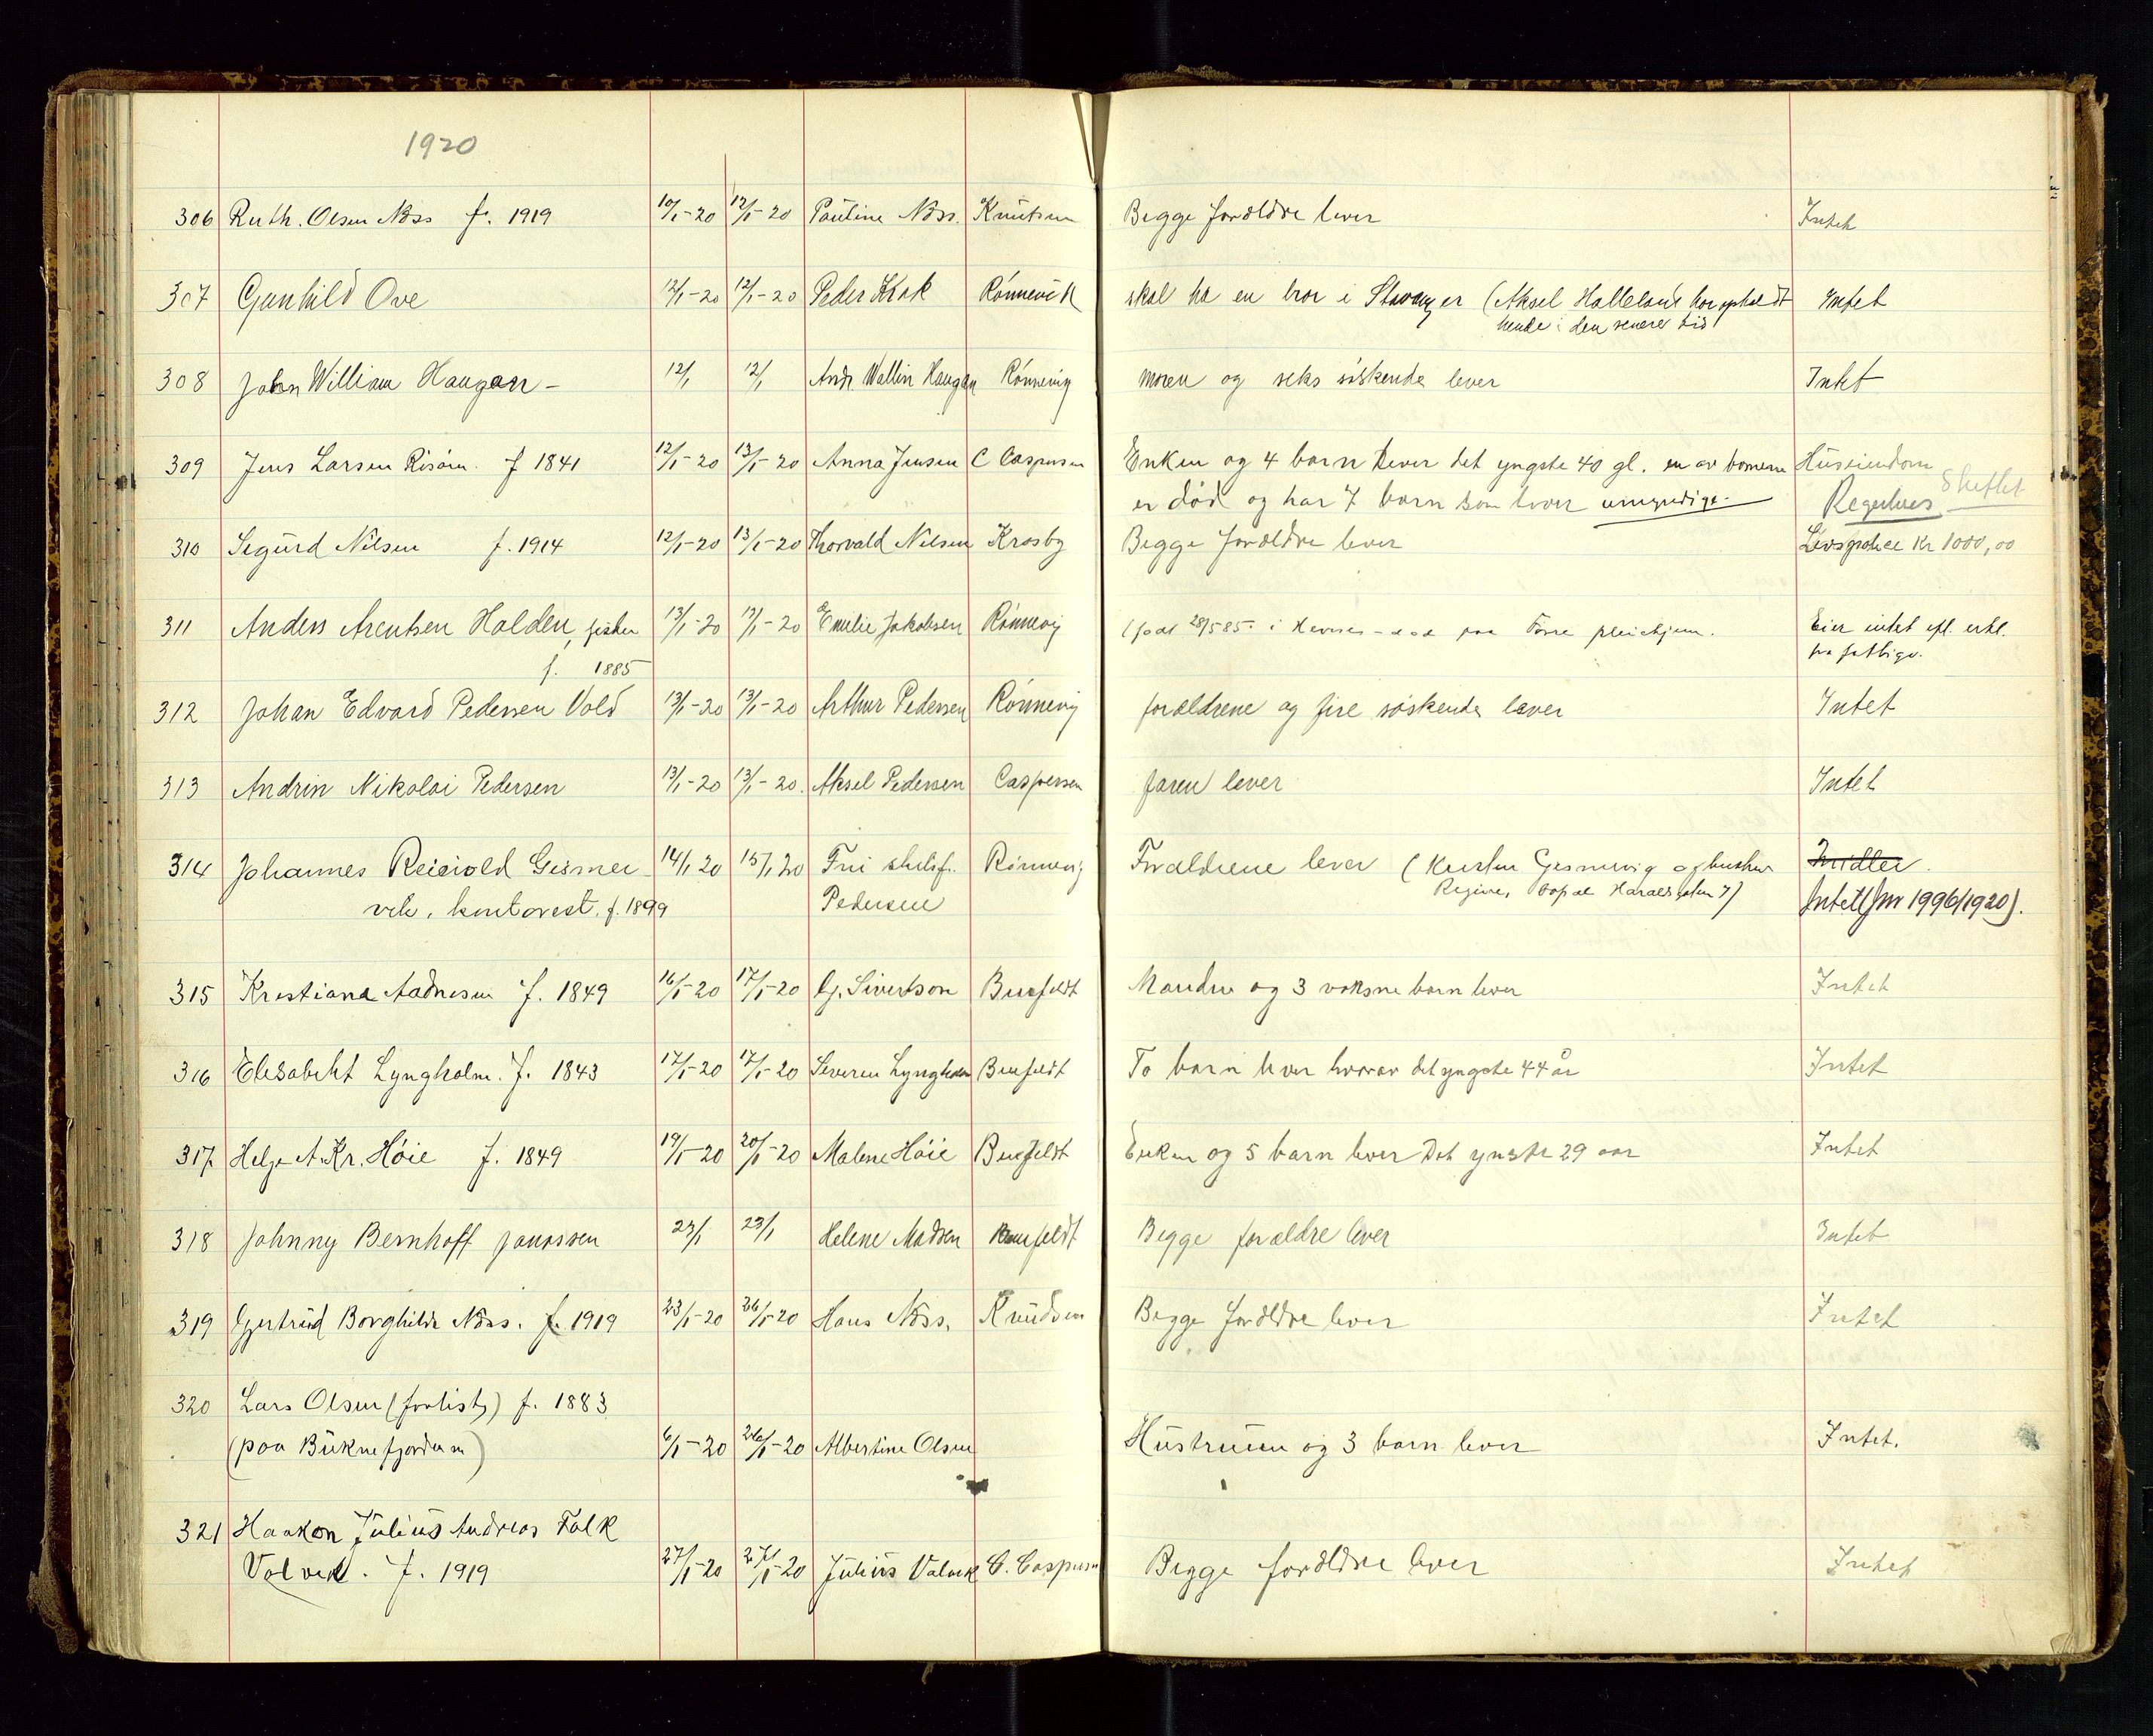 1920
306 Ruth. Olsen Næss f. 1919 10/1-20 12/1-20 Pauline Næss. Knutsen Begge forældre lever Intet
307 Gunhild Ove 12/1-20 12/1-20 Peder Krak Rönnevik skal ha en bror i Stavanger (Aksel Halleland har opholdt Intet
hende i den senere tid)
308 John William Haugan - 12/1 12/1 Andr. Wallin Haugan Rönnevig moren og seks söskende lever Intet
309 Jens Larsen f 1841 12/1-20 13/1-20 Anna Jensen C Caspersen Enken og 4 barn lever det yngste 40 gl. en av barnene Huseiendom
er död og har 7 barn som lever umyndige - Skiftet
310 Sigurd Nilsen f. 1914 12/1-20 13/1-20 Thorvald Nilsen Krosby Begge forældre lever Livspolice Kr 1000,00
311 Anders Arentsen Halden, fisker 13/1-20 13/1-20 Emilie Jakobsen Rönnevig (födt 28/5 85 i paa pleiehjem. Eier intet efl. erkl.
f. 1885 fra fattigv.
312 Johan Edvard Pedersen Vold 13/1-20 13/1-20 Arthur Pedersen Rönnevig forældrene og fire söskende lever Intet
313 Andrin Nikolai Pedersen 13/1-20 13/1-20. Aksel Pedersen Caspersen faren lever Intet
314 Johannes Reidvold Geismer- 14/1 20 15/1 20 Fru Rönnevig Forældrene lever ( og hustru Midler.
vik, kontorest. f. 1899 Pedersen Regine, Haraldsgaten 7) Intet (Jnr 1996/1920).
315 Kristiane Aadnesen f. 1849 16/1-20 17/1-20 G. Sivertson Buxfeldt Manden og 3 voksne barn lever Intet
316 Elisabeht Lyngholm. f. 1843 17/1-20 17/1-20 Severin Lyngholm Buxfeldt To barn lever hvorav det yngste 44 år Intet
317. Helge A. Kr. Höie f. 1849 19/1-20 20/1-20 Malene Höie Buxfeldt Enken og 5 barn lever Det ynste 29 aar Intet
318 Johnny Bernhoff Jonassen 23/1 23/1 Helene Madsen Buxfeldt Begge forældre lever Intet
319 Gjertrud Borghilde Næss. f. 1919 23/1-20 26/1-20 Hans Næss. Knudsen Begge forældre lever Intet
320 Lars Olsen (forlist) f. 1883
(paa Buknefjorden) 6/1-20 26/1-20 Albertine Olsen Hustruen og 3 barn lever Intet.
321 Haakon Julius Andreas Falk
Valvik. f. 1919 27/1-20 27/1-20 Julius Valvik C. Caspersen Begge forældre lever Intet